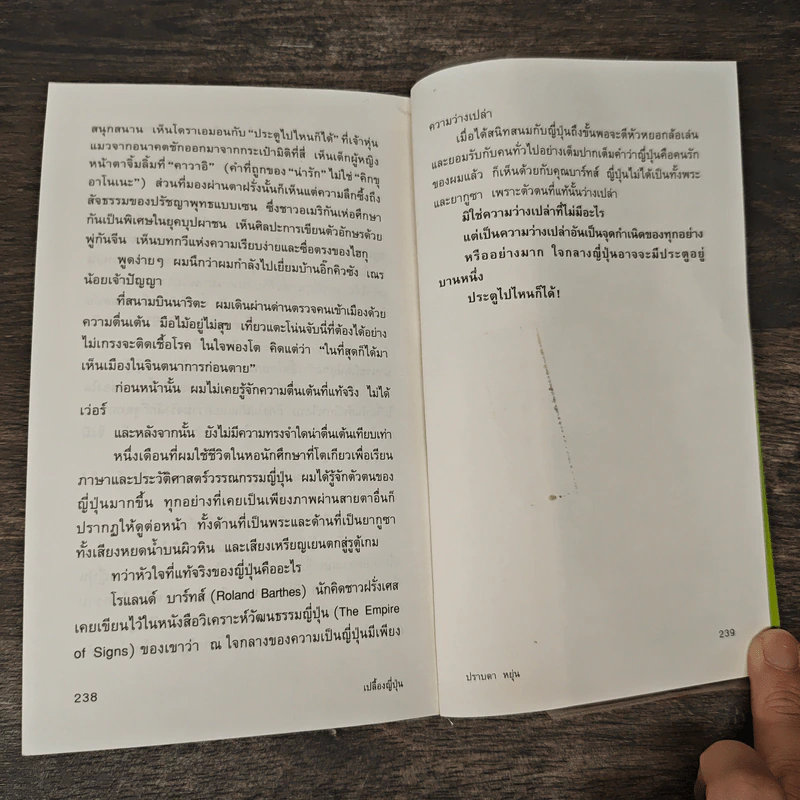 สนุกสนาน เห็นโดราเอมอนกับ “ประตูไปไหนก็ได้” ที่เจ้าหุ่น
แมวจากอนาคตชักออกมาจากกระเป๋ามิติที่สี่ เห็นเด็กผู้หญิง
หน้าตาจิ้มลิ้มที่ “คาวาอิ” (คำที่ถูกของ “น่ารัก” ไม่ใช่ “คิกขุ
อาโนเนะ”) ส่วนที่มองผ่านตาฝรั่งนั้นก็เห็นแต่ความลึกซึ้งถึง
สัจธรรมของปรัชญาพุทธแบบเซน ซึ่งชาวอเมริกันเห่อศึกษา
กันเป็นพิเศษในยุคบุปผาชน เห็นศิลปะการเขียนตัวอักษรด้วย
พู่กันจีน เห็นบทกวีแห่งความเรียบง่ายและซื่อตรงของไฮกุ
พูดง่ายๆ ผมนึกว่าผมกำลังไปเยี่ยมบ้านอิ๊กคิวซัง เณร
น้อยเจ้าปัญญา
ที่สนามบินนาริตะ ผมเดินผ่านด่านตรวจคนเข้าเมืองด้วย
ความตื่นเต้น มือไม้อยู่ไม่สุข เที่ยวแตะโน่นจับนี่ที่ต้องได้อย่าง
ไม่เกรงจะติดเชื้อโรค ในใจพองโต คิดแต่ว่า “ในที่สุดก็ได้มา
เห็นเมืองในจินตนาการก่อนตาย”
ก่อนหน้านั้น ผมไม่เคยรู้จักความตื่นเต้นที่แท้จริง ไม่ได้
เว่อร์
และหลังจากนั้น ยังไม่มีความทรงจำใดน่าตื่นเต้นเทียบเท่า
หนึ่งเดือนที่ผมใช้ชีวิตในหอนักศึกษาที่โตเกียวเพื่อเรียน
ภาษาและประวัติศาสตร์วรรณกรรมญี่ปุ่น ผมได้รู้จักตัวตนของ
ญี่ปุ่นมากขึ้น ทุกอย่างที่เคยเป็นเพียงภาพผ่านสายตาอื่นก็
ปรากฏให้ดูต่อหน้า ทั้งด้านที่เป็นพระและด้านที่เป็นยากูซา
ทั้งเสียงหยดน้ำบนผิวหิน และเสียงเหรียญเยนตกสู่รูตู้เกม
ทว่าหัวใจที่แท้จริงของญี่ปุ่นคืออะไร
โรแลนด์ บาร์ทส์ (Roland Barthes) นักคิดชาวฝรั่งเศส
เคยเขียนไว้ในหนังสือวิเคราะห์วัฒนธรรมญี่ปุ่น (The Empire
of Signs) ของเขาว่า ณ ใจกลางของความเป็นญี่ปุ่นมีเพียง
238
เปลื้องญี่ปุ่น
ความว่างเปล่า
เมื่อได้สนิทสนมกับญี่ปุ่นถึงขั้นพอจะตีหัวหยอกล้อเล่น
และยอมรับกับคนทั่วไปอย่างเต็มปากเต็มคำว่าญี่ปุ่นคือคนรัก
ของผมแล้ว ก็เห็นด้วยกับคุณบาร์ทส์ ญี่ปุ่นไม่ได้เป็นทั้งพระ
และยากูซา เพราะตัวตนที่แท้นั้นว่างเปล่า
มิใช่ความว่างเปล่าที่ไม่มีอะไร
แต่เป็นความว่างเปล่าอันเป็นจุดกำเนิดของทุกอย่าง
หรืออย่างมาก ใจกลางญี่ปุ่นอาจจะมีประตูอยู่
บานหนึ่ง
ประตูไปไหนก็ได้!
239
ปราบดา หยุ่น